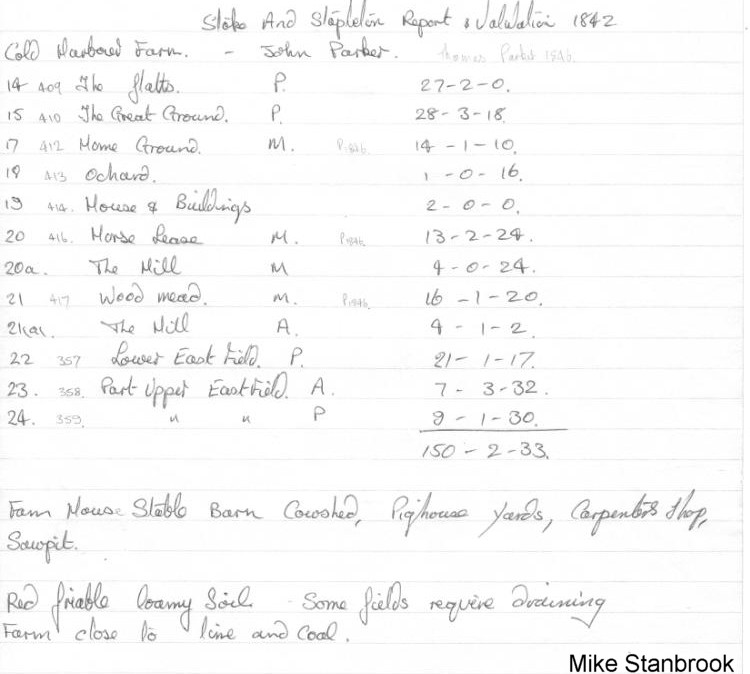 Stoke And Stapleton Report & Valuation 1842
Cold Harbour Farm. - John Parker. Thomas Parker 1846.
14 409 The flatts. P. 27-2-0.
15 410 The Great Ground. P. 28-3-18.
17 412 Home Ground. M. P.1846. 14-1-10.
18 413 Ochard. 1-0-16.
19 414. House & Buildings 2-0-0.
20 416. Horse Lease M. P.1846. 13-2-24.
20a. The Hill M 4-0-24.
21 417 Wood mead. M. P.1846. 16-1-20.
21(a). The Hill A. 4-1-2.
22 357 Lower East Field. P. 21-1-17.
23. 358. Part Upper East Field. A. 7-3-32.
24. 359. " " P 9-1-30.
150-2-33.
Farm House Stable Barn Cowshed, Pighouse Yards, Carpenters Shop,
Sawpit.
Red friable loamy Soil - Some fields require draining
Farm close to line and Coal.
Mike Stanbrook